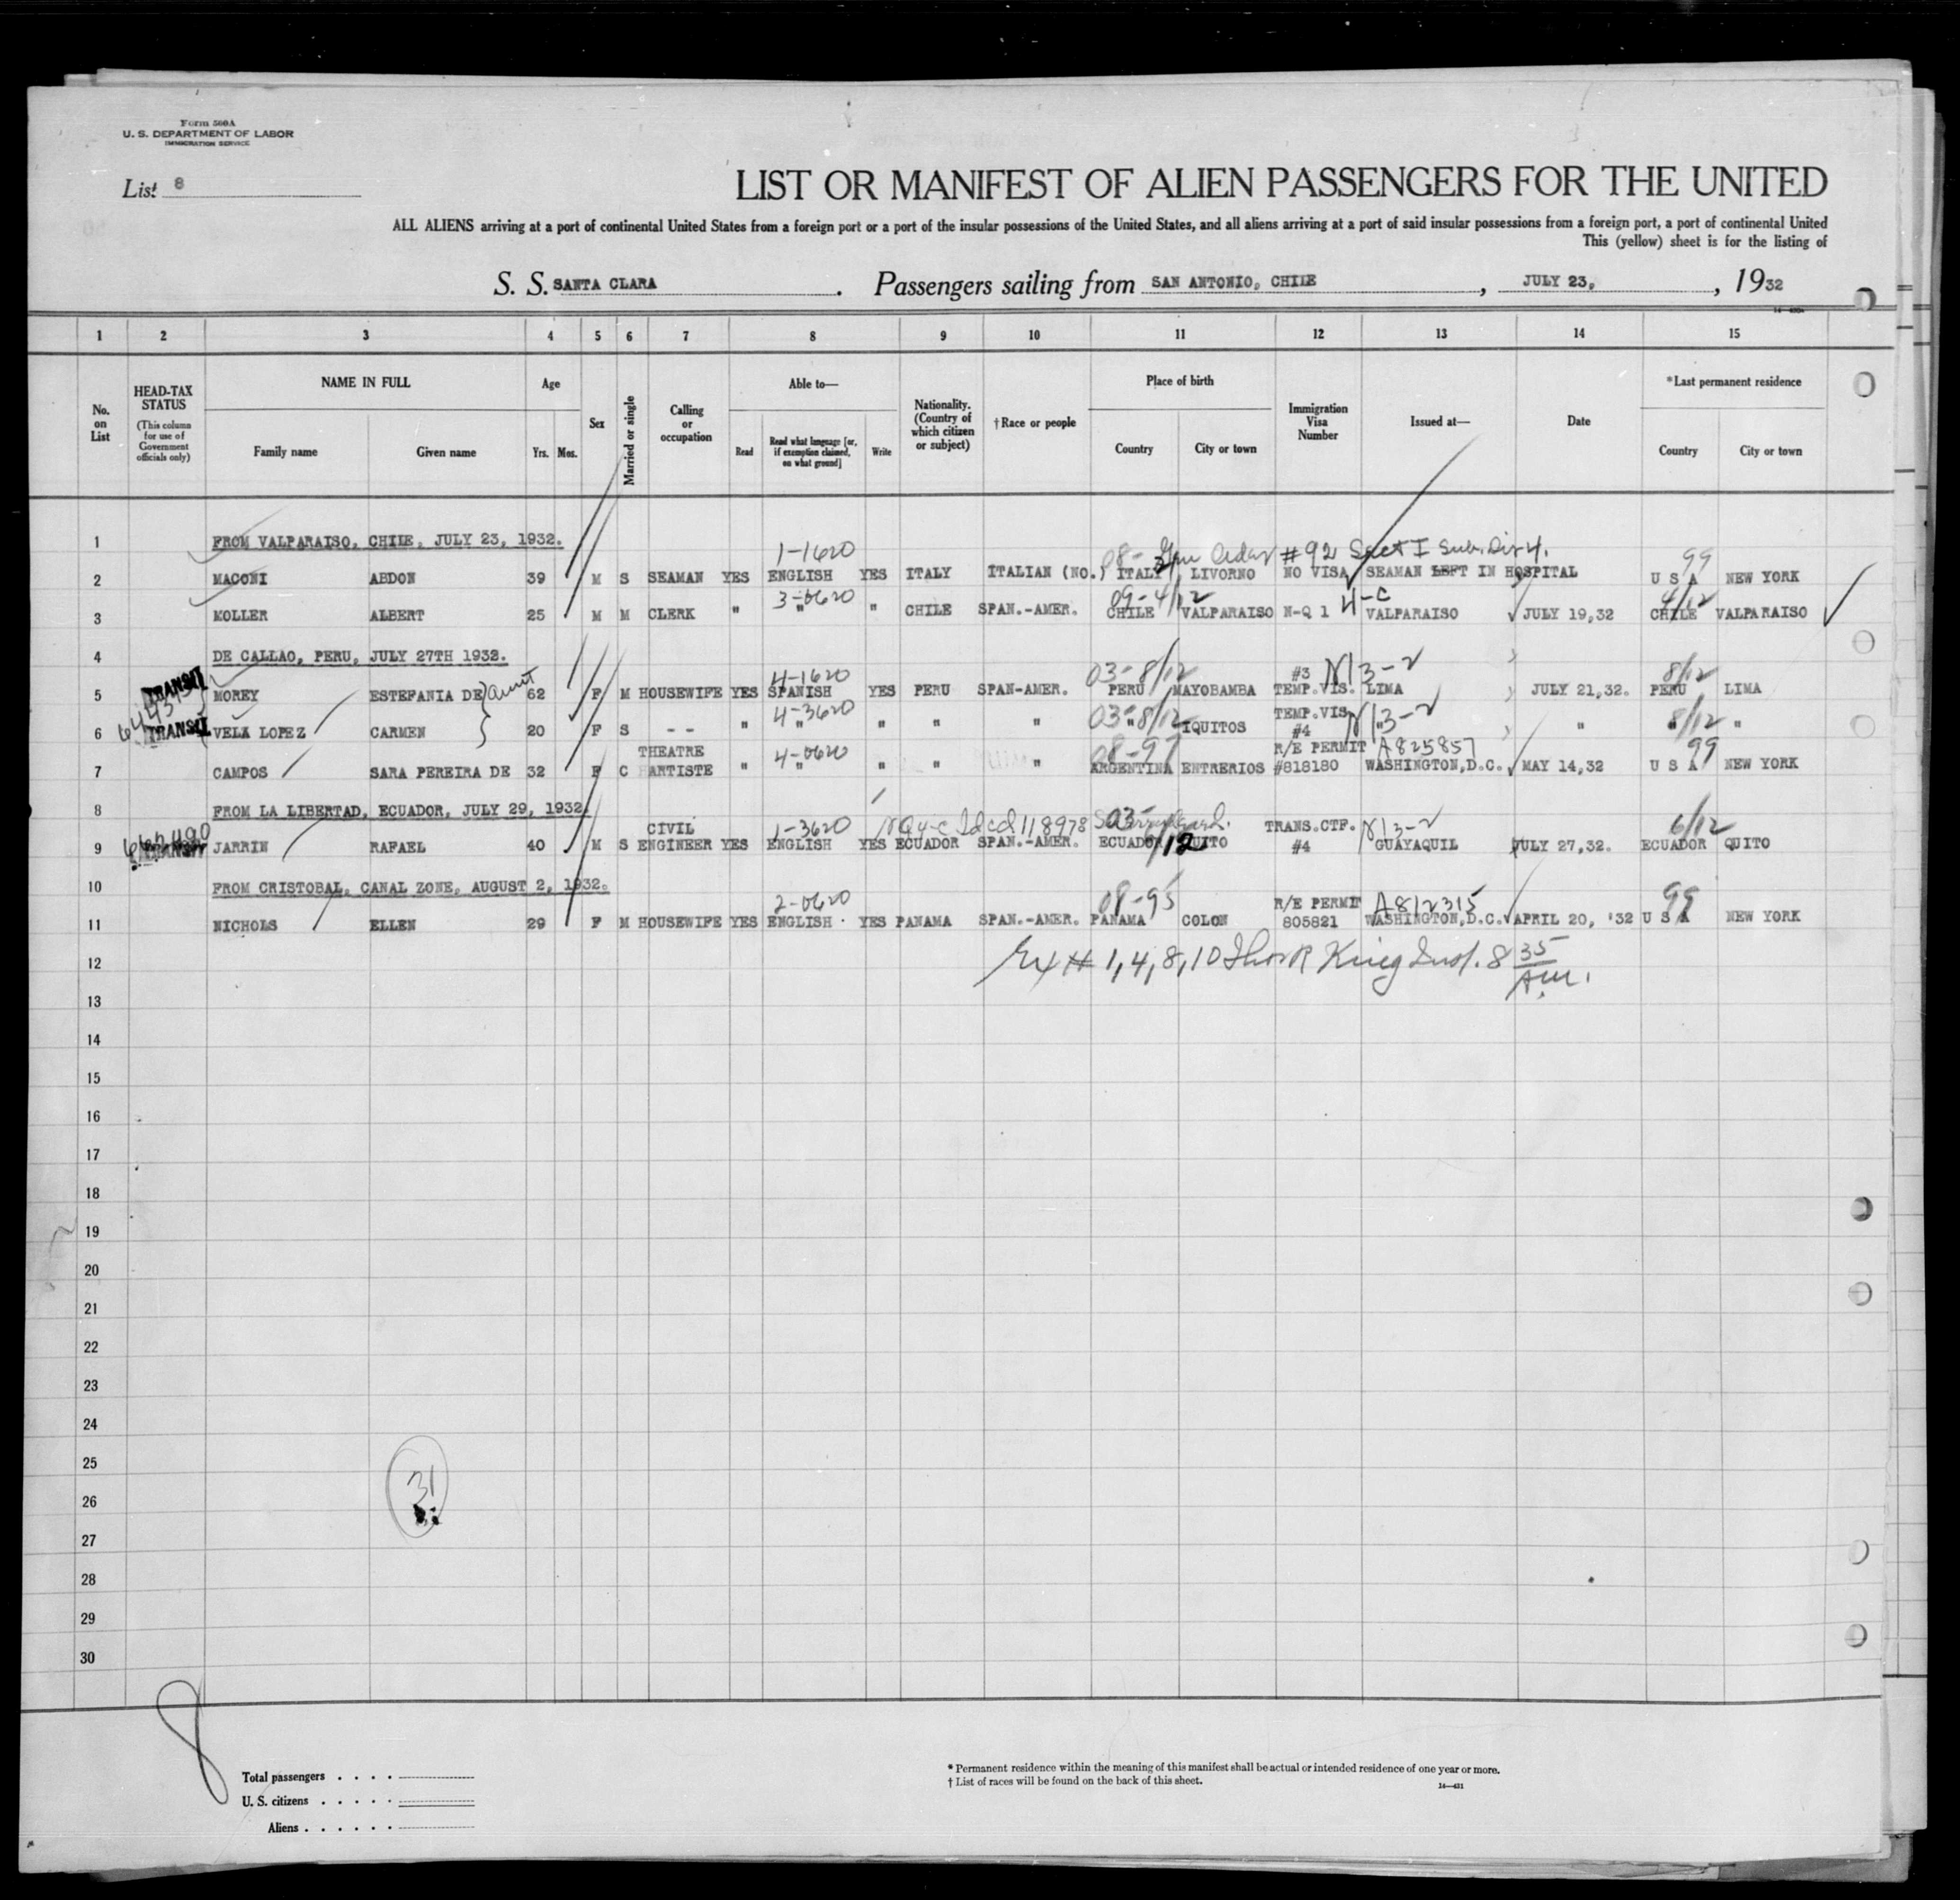 Form 500A
U. S. DEPARTMENT OF LABOR
IMMIGRATION SERVICE
List 8
LIST OR MANIFEST OF ALIEN PASSENGERS FOR THE UNITED
ALL ALIENS arriving at a port of continental United States from a foreign port or a port of the insular possessions of the United States, and all aliens arriving at a port of said insular possessions from a foreign port, a port of continental United
This (yellow) sheet is for the listing of
S. S. SANTA CLARA . Passengers sailing from SAN ANTONIO, CHILE , JULY 23, , 1932
1 2 3 4 5 6 7 8 9 10 11 12 13 14 15
No. on List
HEAD-TAX STATUS (This column for use of Government officials only)
NAME IN FULL
Family name Given name
Age
Yrs. Mos.
Sex
Married or single
Calling or occupation
Able to—
Read
Read what language [or, if exemption claimed, on what ground]
Write
Nationality. (Country of which citizen or subject)
†Race or people
Place of birth
Country City or town
Immigration Visa Number
Issued at—
Date
*Last permanent residence
Country City or town
1 FROM VALPARAISO, CHILE, JULY 23, 1932.
1-1620 #92 Sect I Sub. Div 4. 99
2 MACONI ABDON 39 M S SEAMAN YES ENGLISH YES ITALY ITALIAN (NO.) ITALY LIVORNO NO VISA SEAMAN LEFT IN HOSPITAL U S A NEW YORK
3-0620 09-4/12 4-C 4/12
3 KOLLER ALBERT 25 M M CLERK " " " CHILE SPAN.-AMER. CHILE VALPARAISO N-Q 1 VALPARAISO JULY 19,32 CHILE VALPARAISO
4 DE CALLAO, PERU, JULY 27TH 1932.
TRANSIT aunt 4-1620 03-8/12 #3 N13-2 8/12
5 MOREY ESTEFANIA DE 62 F M HOUSEWIFE YES SPANISH YES PERU SPAN-AMER. PERU MAYOBAMBA TEMP.VIS. LIMA JULY 21,32. PERU LIMA
4-3620 03-8/12 TEMP.VIS N13-2 8/12
6 TRANSIT VELA LOPEZ CARMEN 20 F S - - " " " " " " IQUITOS #4 " " " "
THEATRE 4-0620 08-97 R/E PERMIT A825857 99
7 CAMPOS SARA PEREIRA DE 32 F C ARTISTE " " " " " ARGENTINA ENTRERIOS #818180 WASHINGTON,D.C. MAY 14,32 U S A NEW YORK
8 FROM LA LIBERTAD, ECUADOR, JULY 29, 1932.
CIVIL 1-3620 118978 03- TRANS.CTF. N13-2 6/12
9 JARRIN RAFAEL 40 M S ENGINEER YES ENGLISH YES ECUADOR SPAN.-AMER. ECUADOR QUITO #4 GUAYAQUIL JULY 27,32. ECUADOR QUITO
10 FROM CRISTOBAL, CANAL ZONE, AUGUST 2, 1932.
2-0620 08-95 R/E PERMIT A812315 99
11 NICHOLS ELLEN 29 F M HOUSEWIFE YES ENGLISH YES PANAMA SPAN.-AMER. PANAMA COLON 805821 WASHINGTON,D.C. APRIL 20, '32 U S A NEW YORK
12 # 1, 4, 8, 10 King Insp. 8 35 A.M.
13
14
15
16
17
18
19
20
21
22
23
24
25
31
26
27
28
29
30
8
Total passengers . . . .
U. S. citizens . . . . .
Aliens . . . . . .
* Permanent residence within the meaning of this manifest shall be actual or intended residence of one year or more.
† List of races will be found on the back of this sheet.
14—431